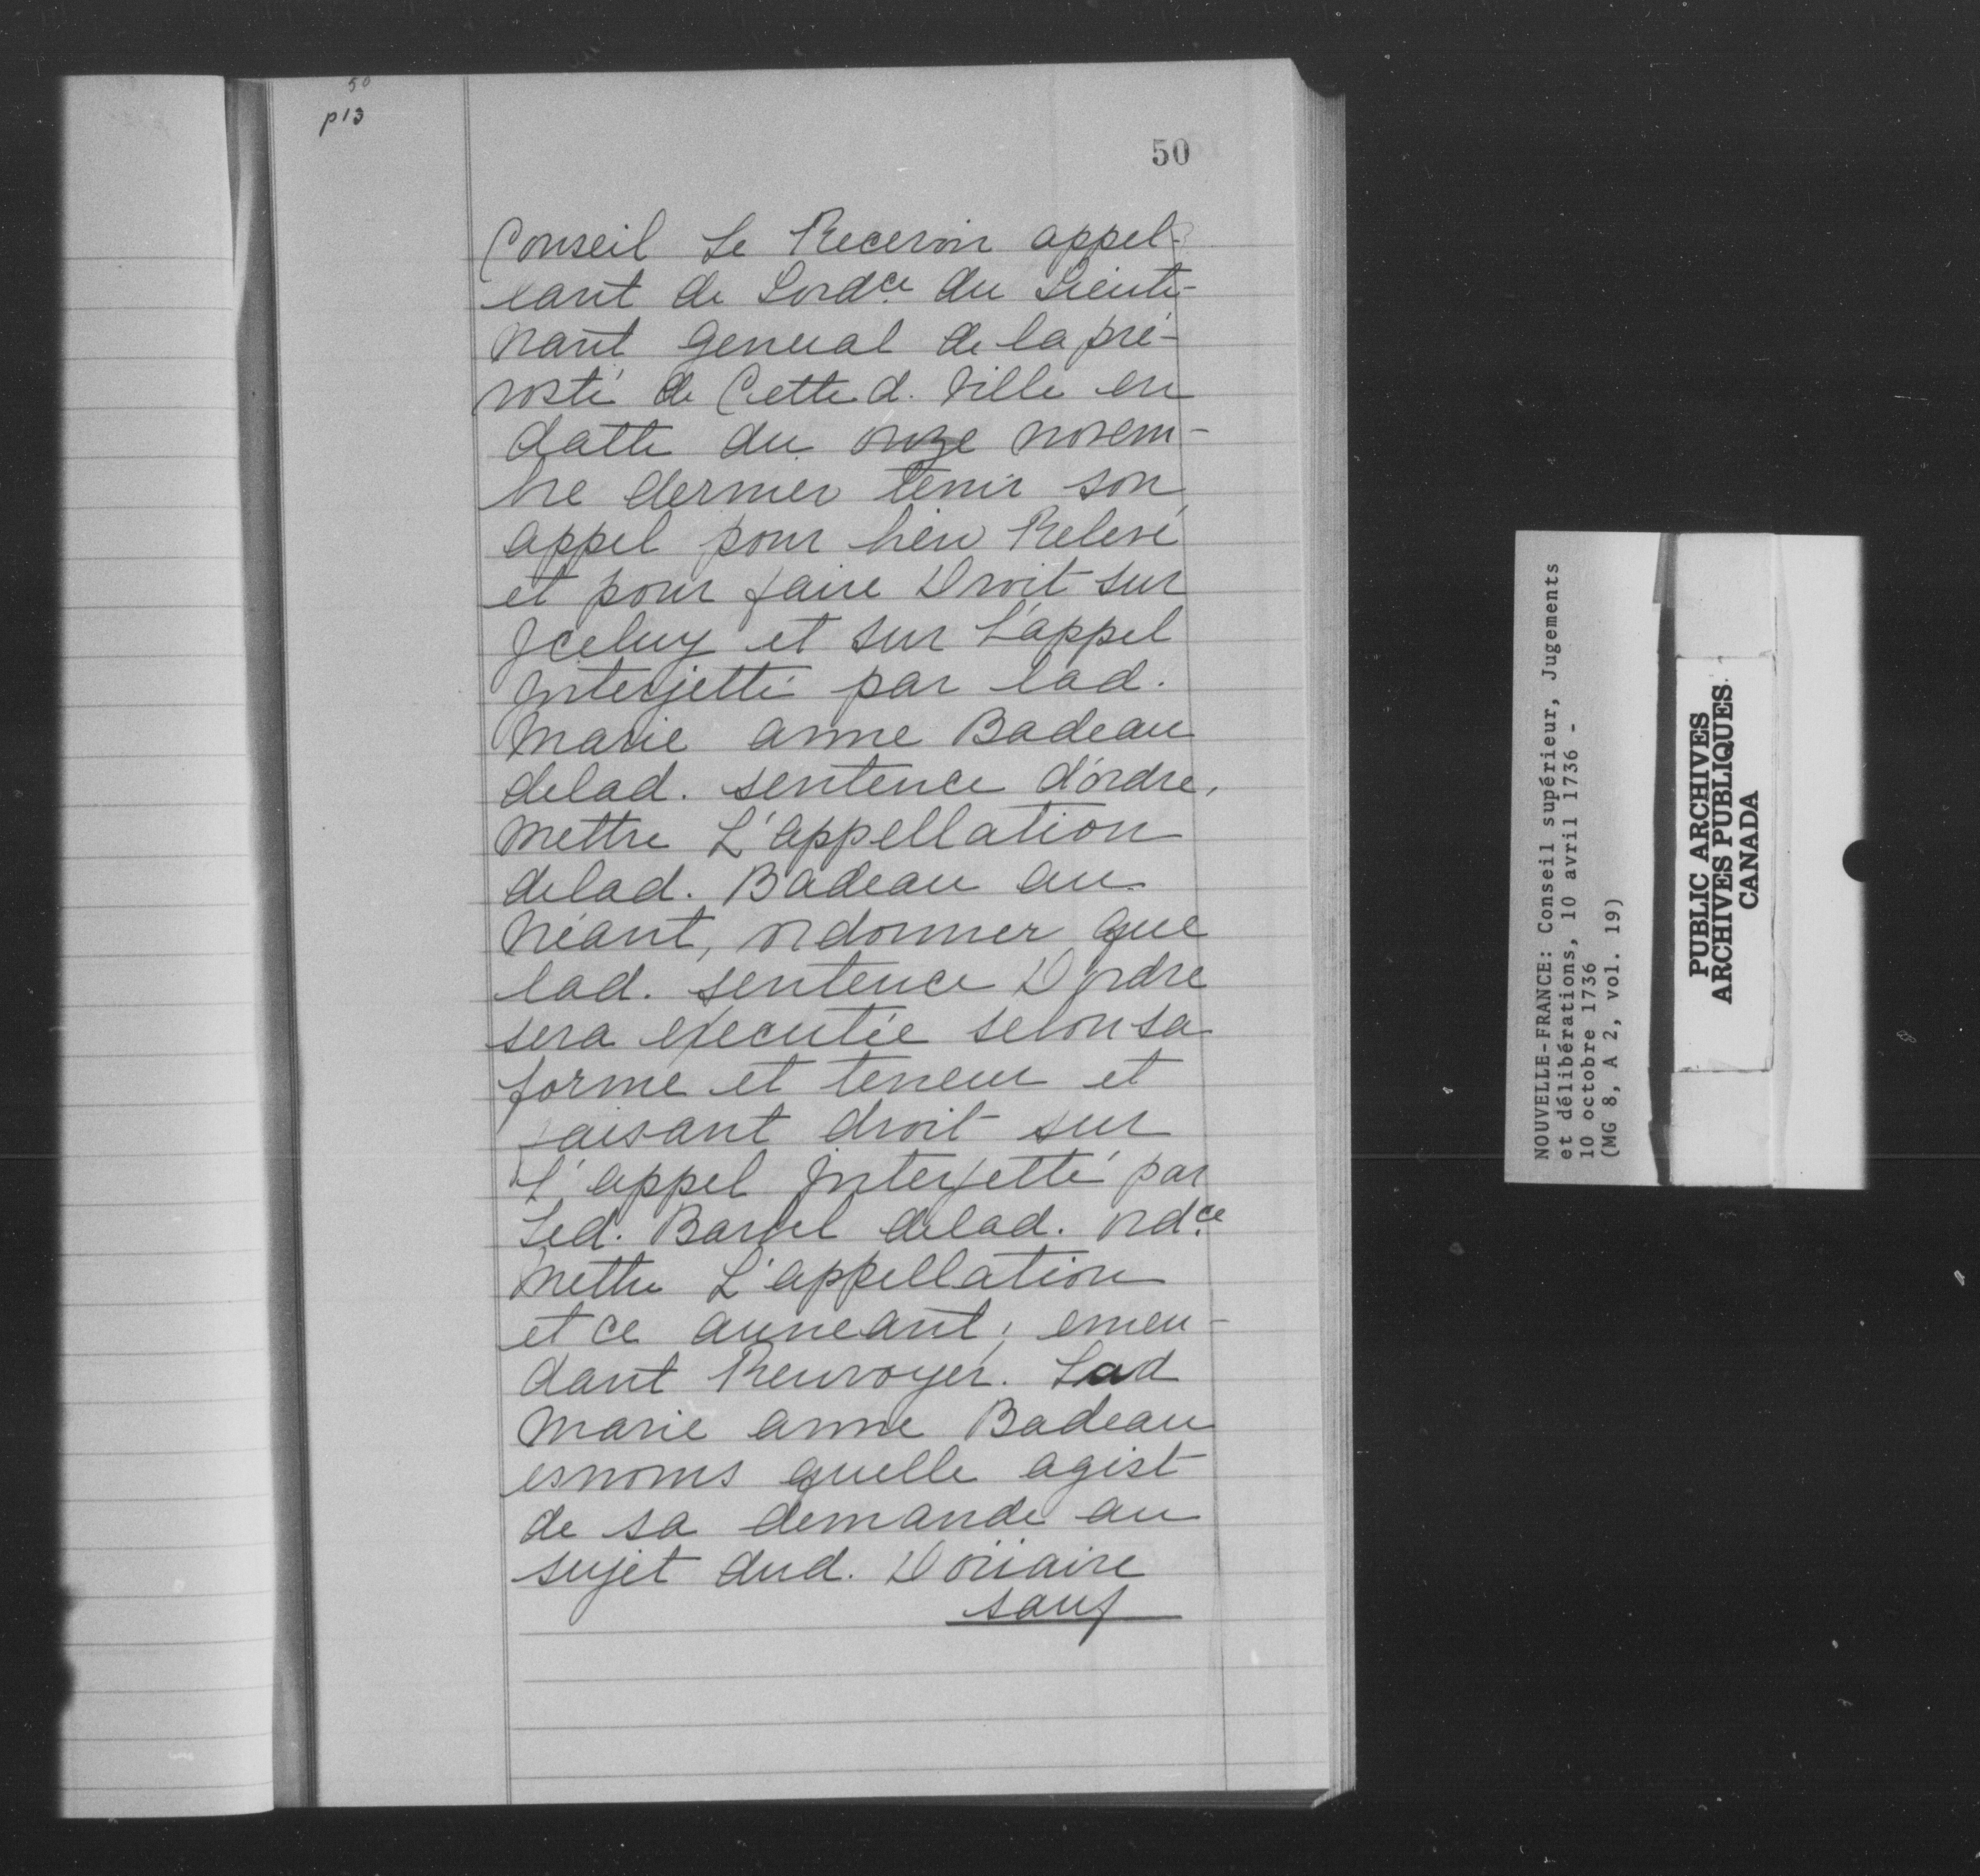 50
p13
50
Conseil Le Recevoir appel-
lant de Lordce du Lieute-
nant general de la pré-
vosté de Cette d. Ville en
datte du onze novem-
bre dernier tenir son
appel pour bien Relevé
et pour faire Droit sur
Jceluy et sur L'appel
Jnterjetté par lad.
Marie anne Badeau
delad. sentence d'ordre,
mettre L'appellation
delad. Badeau au
Néant, ordonner que
lad. sentence D'ordre
sera executée selon sa
forme et teneur et
faisant droit sur
L'appel Jnterjetté par
Led. Barbel delad. ordce
mettre L'appellation
et ce auneant; emen-
dant Renvoyer. Lad
Marie anne Badeau
esnoms quelle agist
de sa demande au
sujet dud. Doüaire
sauf
NOUVELLE-FRANCE: Conseil supérieur, Jugements
et délibérations, 10 avril 1736 -
10 octobre 1736
(MG 8, A 2, vol. 19)
PUBLIC ARCHIVES
ARCHIVES PUBLIQUES
CANADA